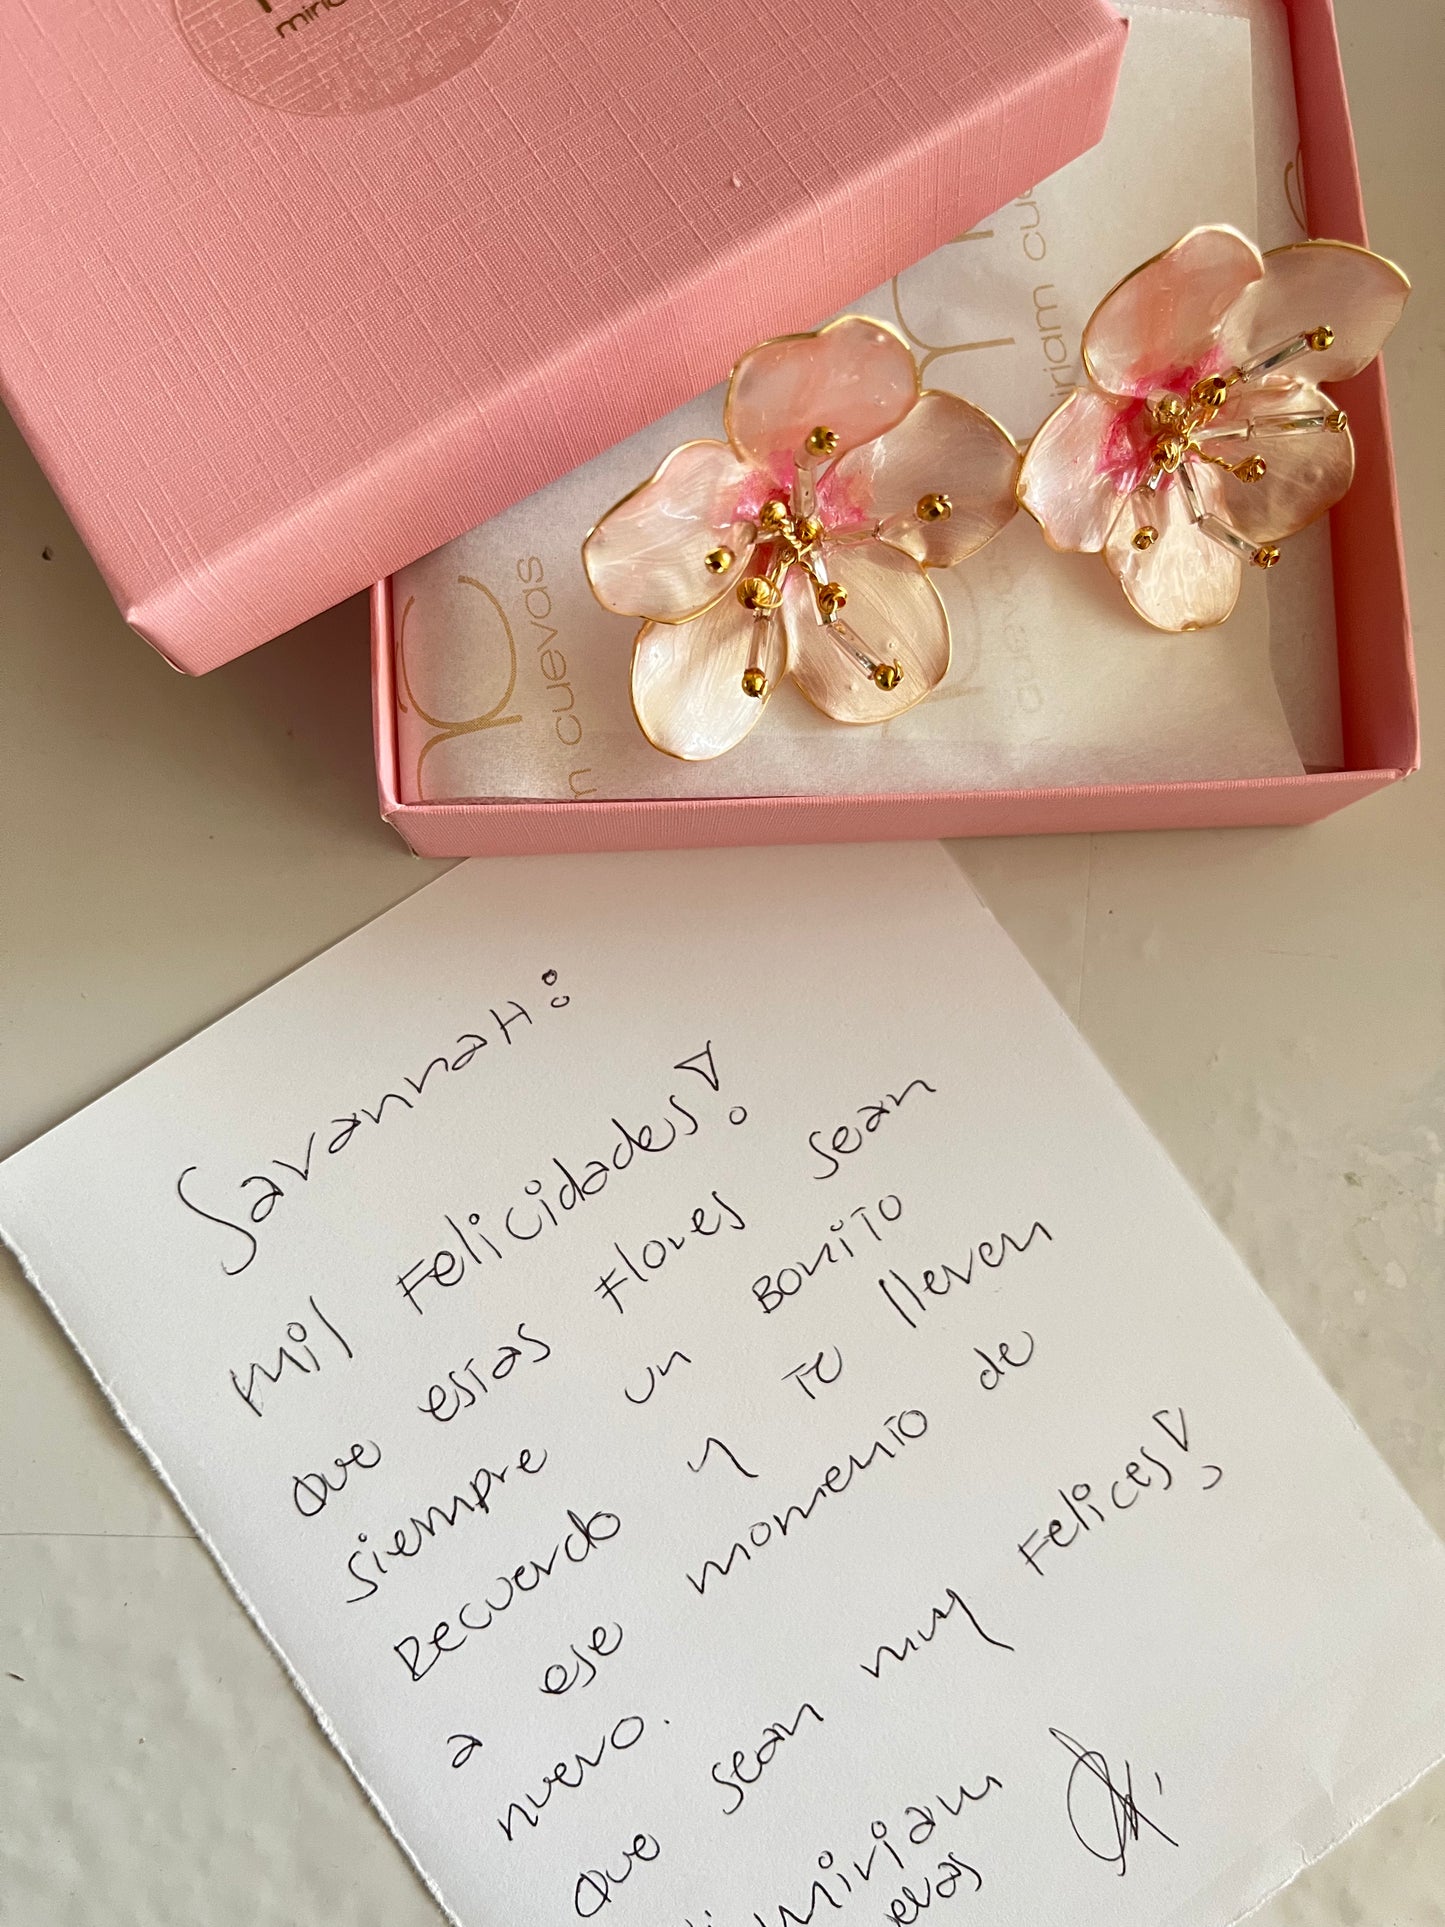 cuevas
SavannaH:
mil Felicidades!
que estas Flores sean
siempre un Bonito
Recuerdo y te lleven
a ese momento de
nuevo.
que sean muy Felices!
miriam